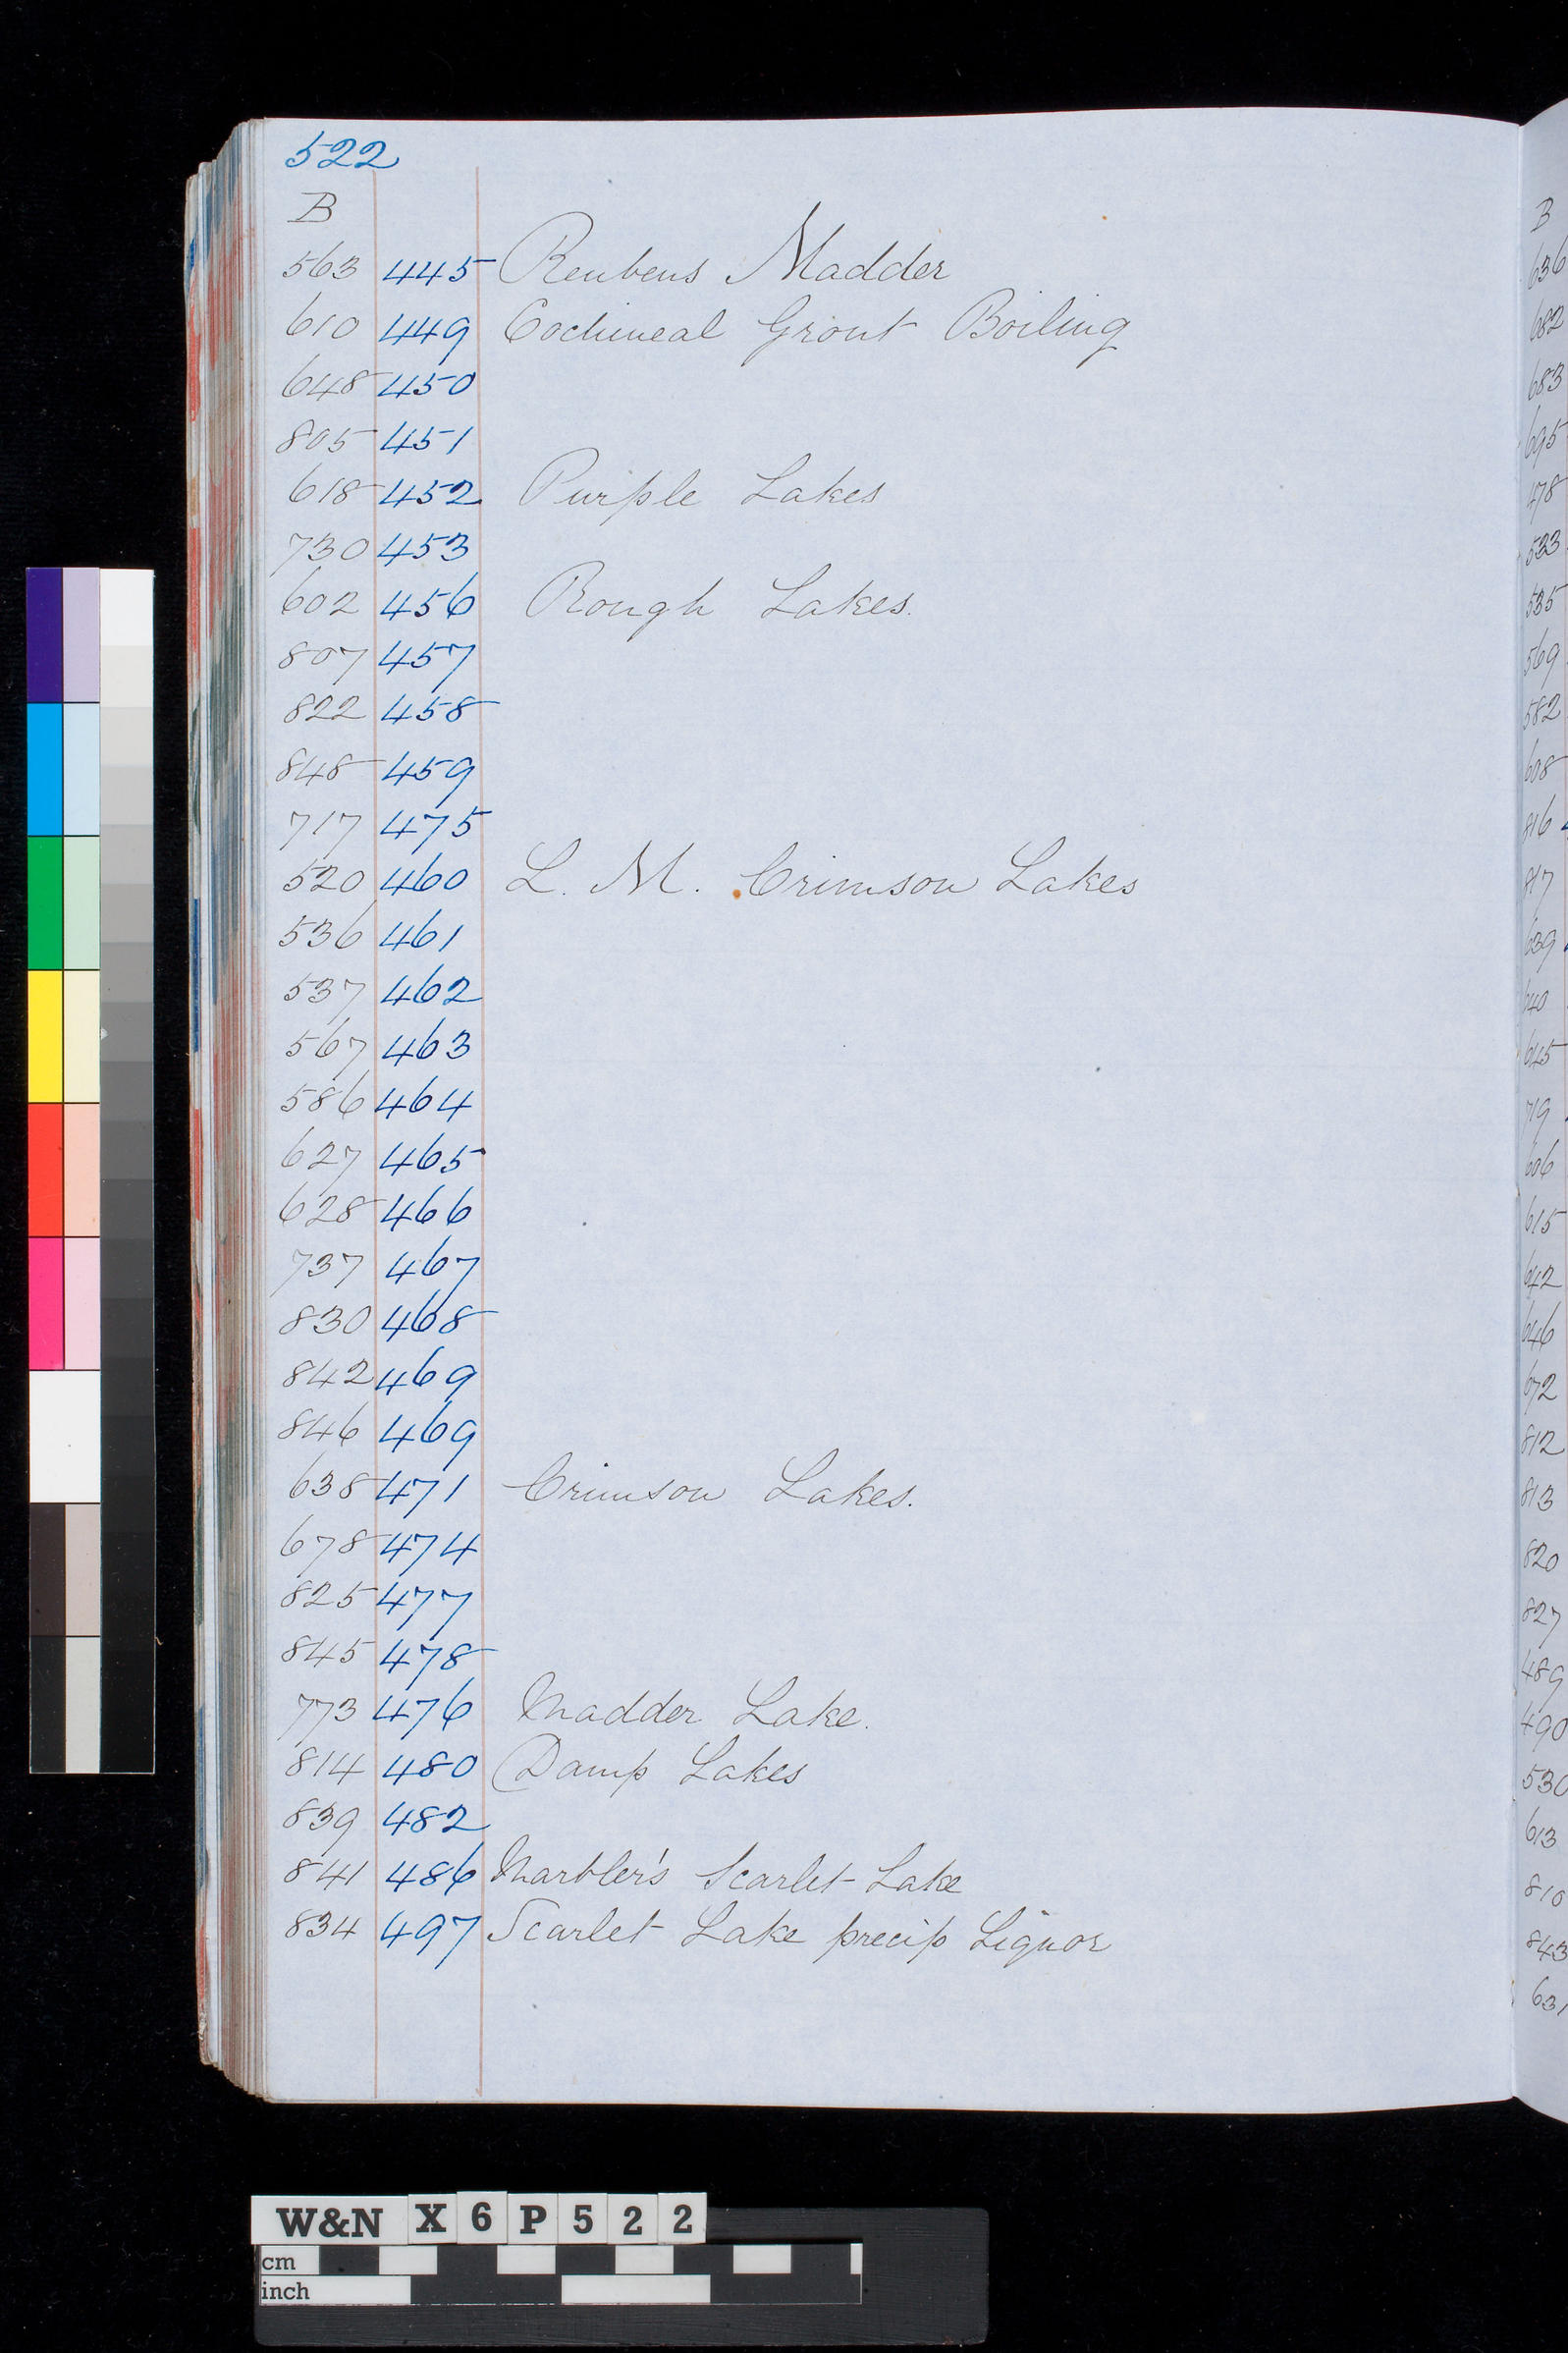 522
B
563 445 Reubens Madder
610 449 Cochineal Grout Boiling
648 450
805 451
618 452 Purple Lakes
730 453
602 456 Rough Lakes.
807 457
822 458
848 459
717 475
520 460 L. M. Crimson Lakes
536 461
537 462
567 463
586 464
627 465
628 466
737 467
830 468
842 469
846 469
638 471 Crimson Lakes.
678 474
825 477
845 478
773 476 Madder Lake.
814 480 Damp Lakes
839 482
841 486 Marbler's Scarlet Lake
834 497 Scarlet Lake precip Liquor
B
636
682
683
695
478
533
535
569
582
608
816
817
639
640
645
719
606
615
642
646
672
812
813
820
827
489
490
530
613
810
843
631
W&N X 6 P 5 2 2
cm
inch